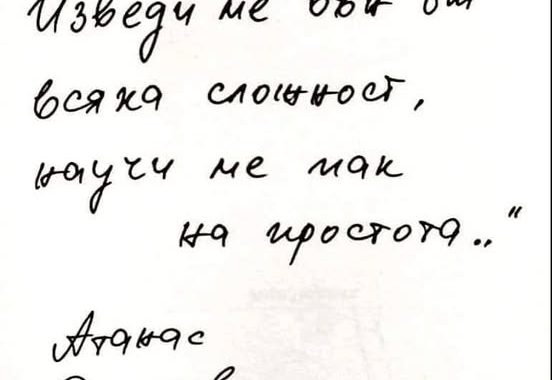 Изведи ме вън от
всяка сложност,
научи ме пак
на простота.."
Атанас